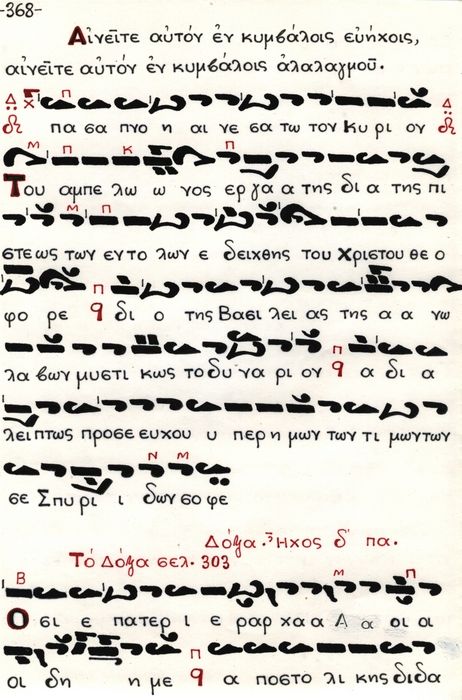 -368-
Αἰνεῖτε αὐτόν ἐν κυμβάλοις εὐήχοις,
αἰνεῖτε αὐτόν ἐν κυμβάλοις ἀλαλαγμοῦ.
πα σα πνο η αι νε σα τω τον Κυ ρι ον
Του αμπε λω ω νος ερ γα α της δι α της πι
στε ως των εν το λων ε δειχθης του Χριστου θε ο
φο ρε q δι ο της Βασι λει ας της α α νω
λα βων μυστι κως το δυ να ρι ον q α δι α
λειπτως προσε ευχου υ περ η μων των τι μωντων
σε Σπυρι ι δων σο φε
Δόξα. Ἦχος δ' πα.
Τό Δόξα σελ. 303
Ο σι ε πατερ ι ε ραρ χα α Α α οι οι
οι δη η με q α ποστο λι κης διδα